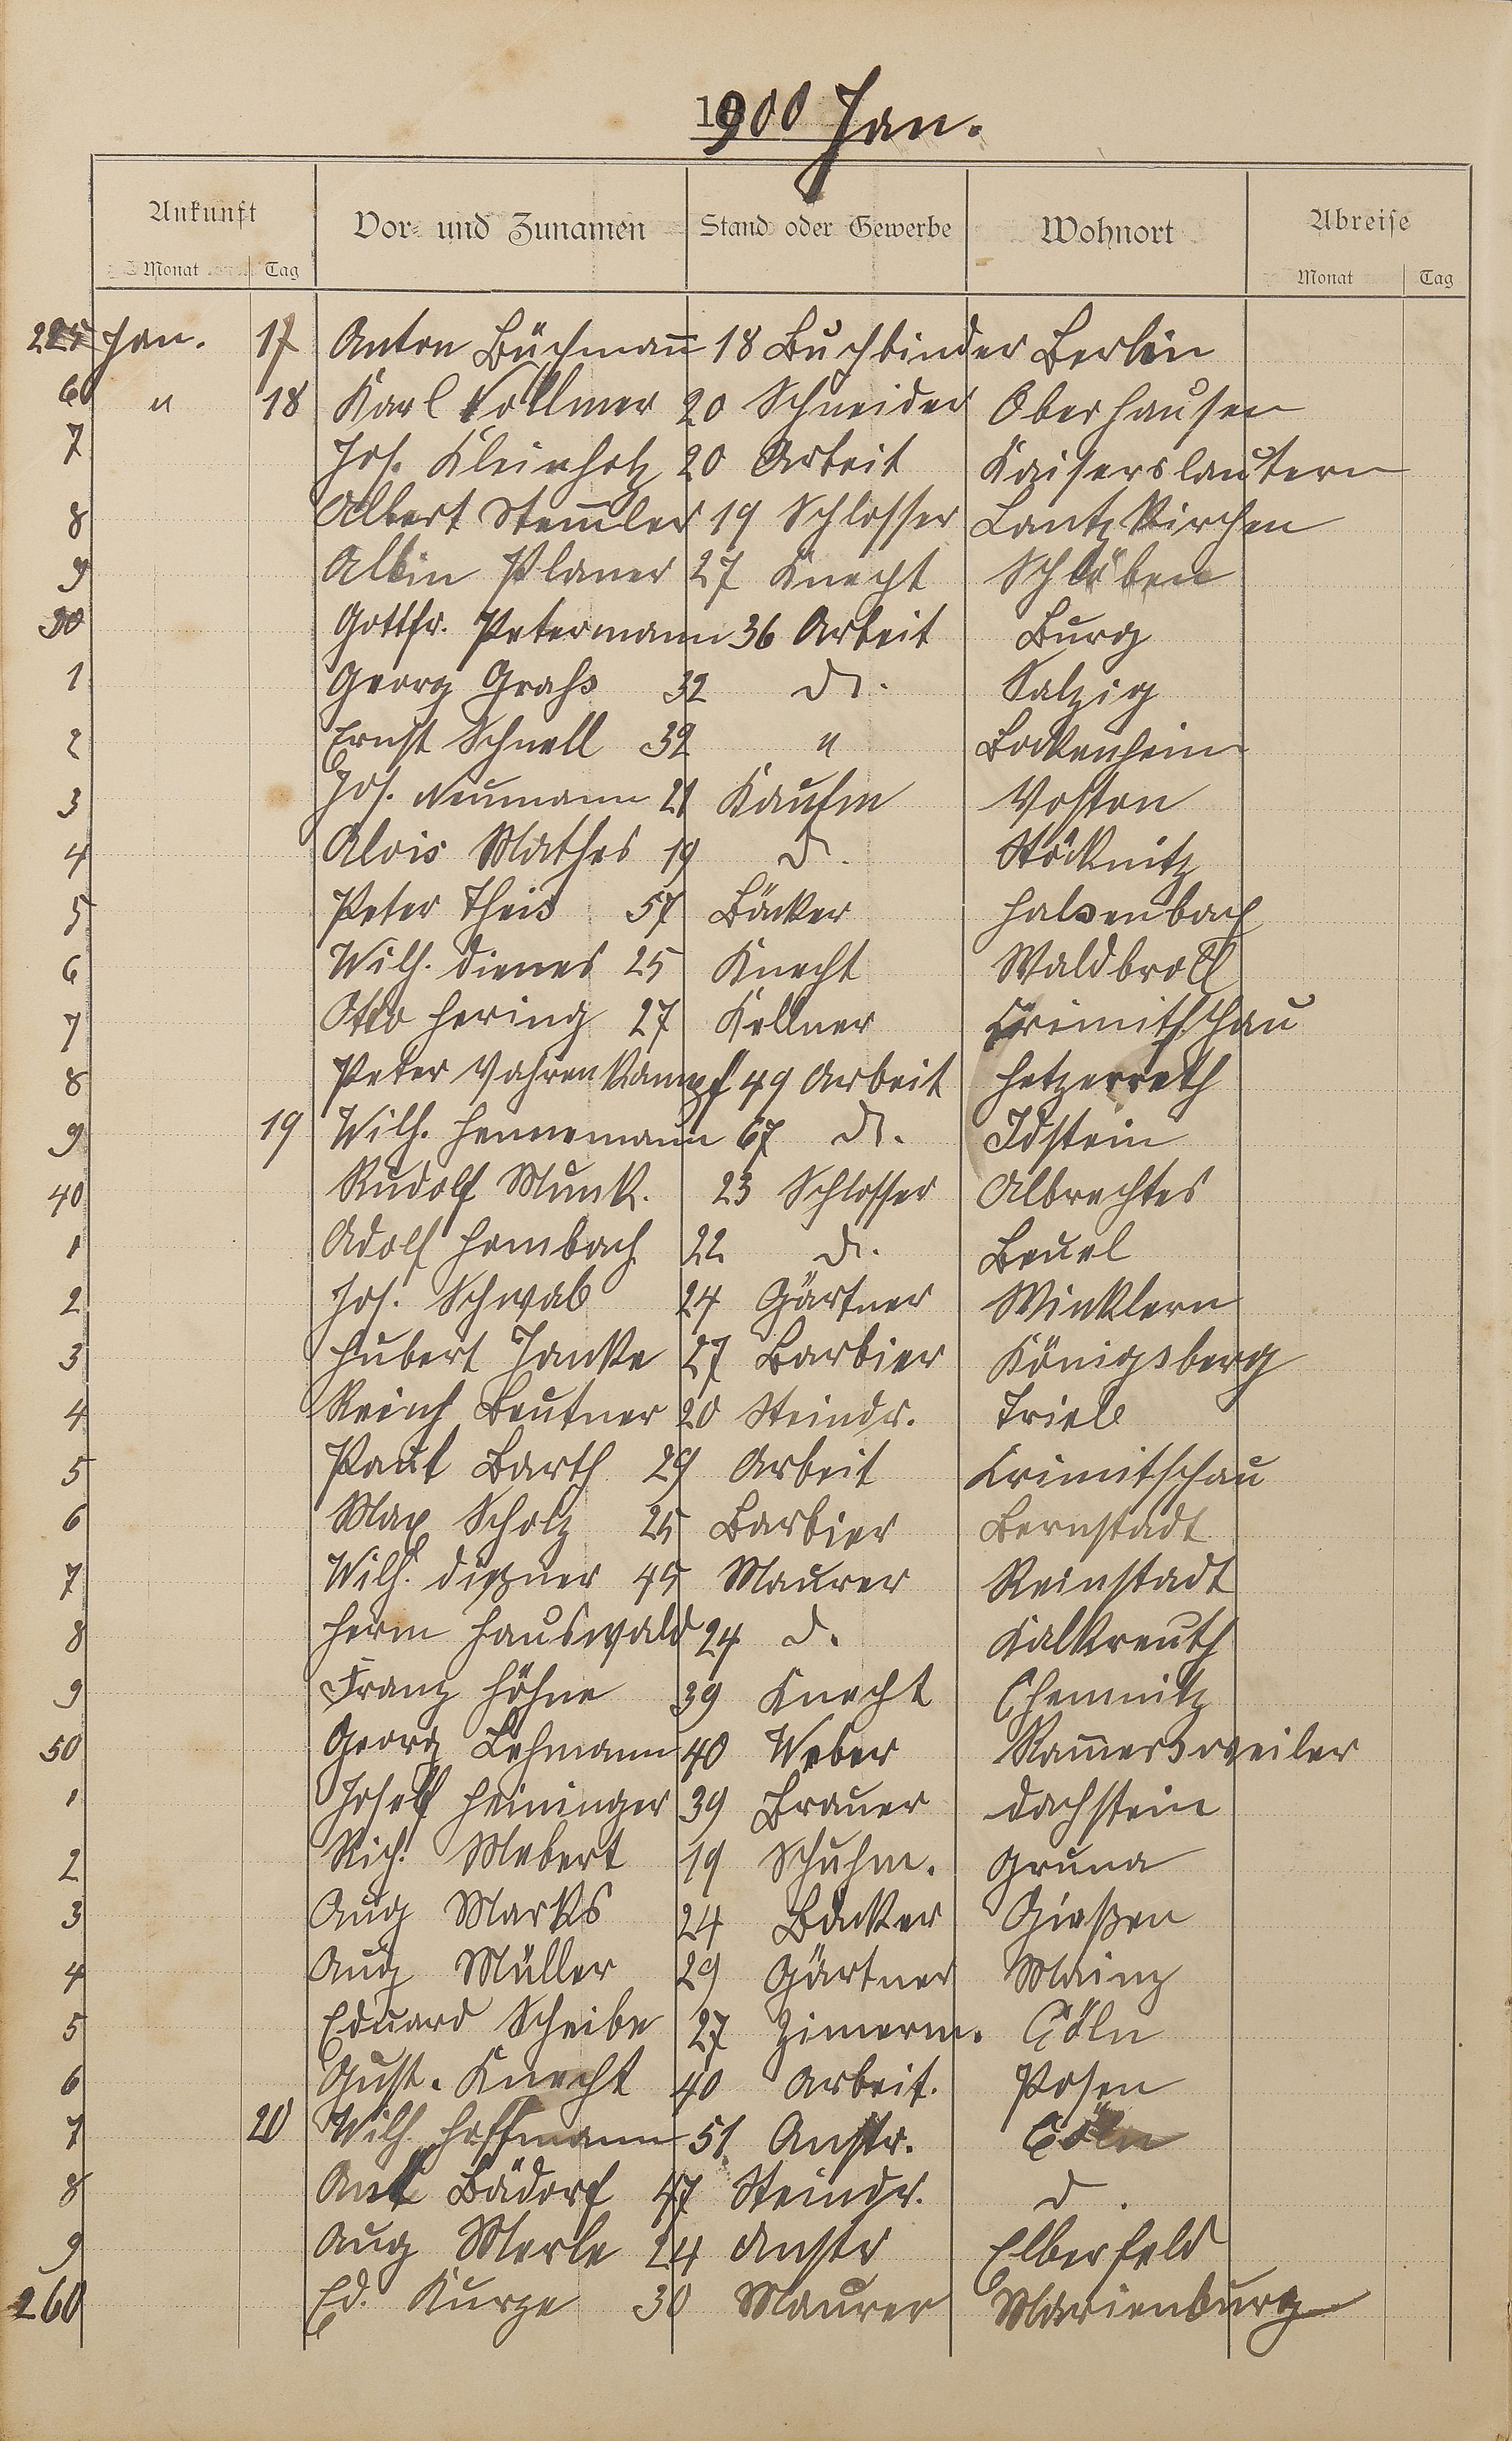 1900 Jan.
Ankunft Vor- und Zunamen Stand oder Gewerbe Wohnort Abreise
Monat Tag Monat Tag
225 Jan. 17 Anton Büchmann 18 Buchbinder Berlin
6 " 18 Karl Vollmer 20 Schneider Oberhausen
7 Jos. Kleinholz 20 Arbeit Kaiserslautern
8 Albert Stemler 19 Schlosser Lantzkirchen
9 Albin Planer 27 Knecht Schlöben
30 Gottfr. Petermann 36 Arbeit Burg
1 Georg Grahs 32 d. Salzig
2 Ernst Schnell 32 " Bockenheim
3 Jos. Neumann 21 Kaufm Voston
4 Alois Mathes 19 d. Stöcknitz
5 Peter Theis 57 Bäcker Halsenbach
6 Wilh. Dienes 25 Knecht Waldbroll
7 Otto Hering 27 Kellner Crimitschau
8 Peter Vahrenkampf 49 Arbeit Hetzerath
9 19 Wilh. Hennemann 67 d. Idstein
40 Rudolf Munk. 23 Schlosser Albrechtes
1 Adolf Hombach 22 d. Beuel
2 Jos. Schwab 24 Gärtner Winklern
3 Hubert Janke 27 Barbier Königsberg
4 Reinh Beutner 20 Steindr. Triele
5 Paul Barth 29 Arbeit Krimitschau
6 Max Scholz 25 Barbier Bernstadt
7 Wilh. 45 Maurer Reinstadt
8 Herm Hauswald 24 d. Kalkreuth
9 Franz Höhne 39 Knecht Chemnitz
50 Georg Lehmann 40 Weber Ramersweiler
1 Josef Heininger 39 Brauer Dachstein
2 Rich. Mebert 19 Schuhm. Gruna
3 Aug Marks 24 Bäcker Gießen
4 Aug Müller 29 Gärtner Mainz
5 Eduard Scheibe 27 Zimerm. Cöln
6 Gust. Knecht 40 Arbeit. Posen
7 20 Wilh. Hoffmann 51 Anstr. Cöln
8 Ant Bädorf 47 Steindr. d.
9 Aug Merle 24 Anstr Elberfeld
260 Ed. Kurze 30 Maurer Marienburg